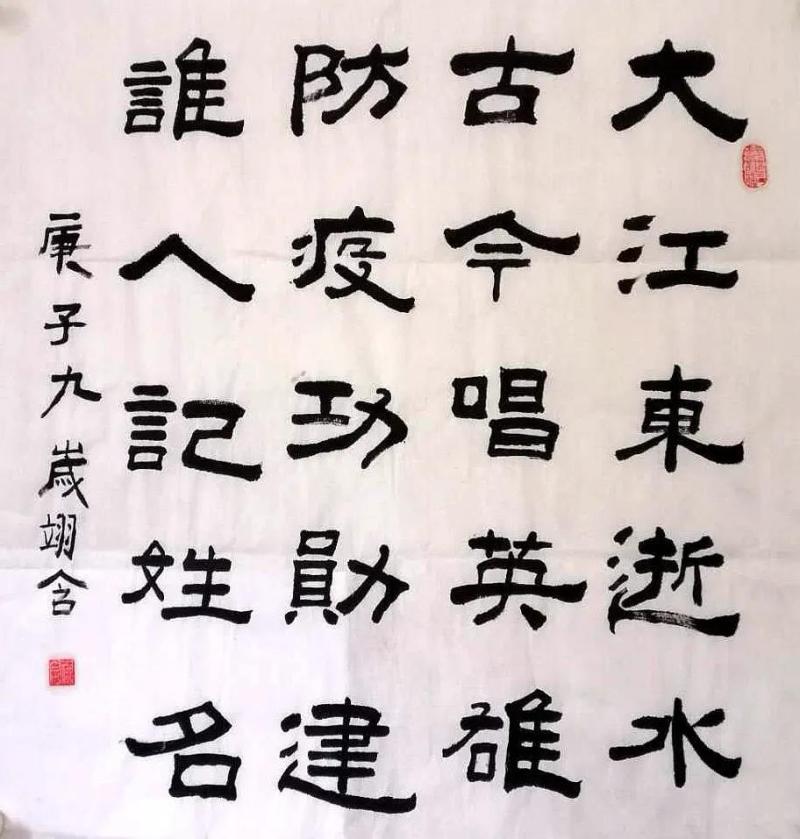 大江東逝水
古今唱英雄
防疫功勛建
誰人記姓名
庚子九歲翊含